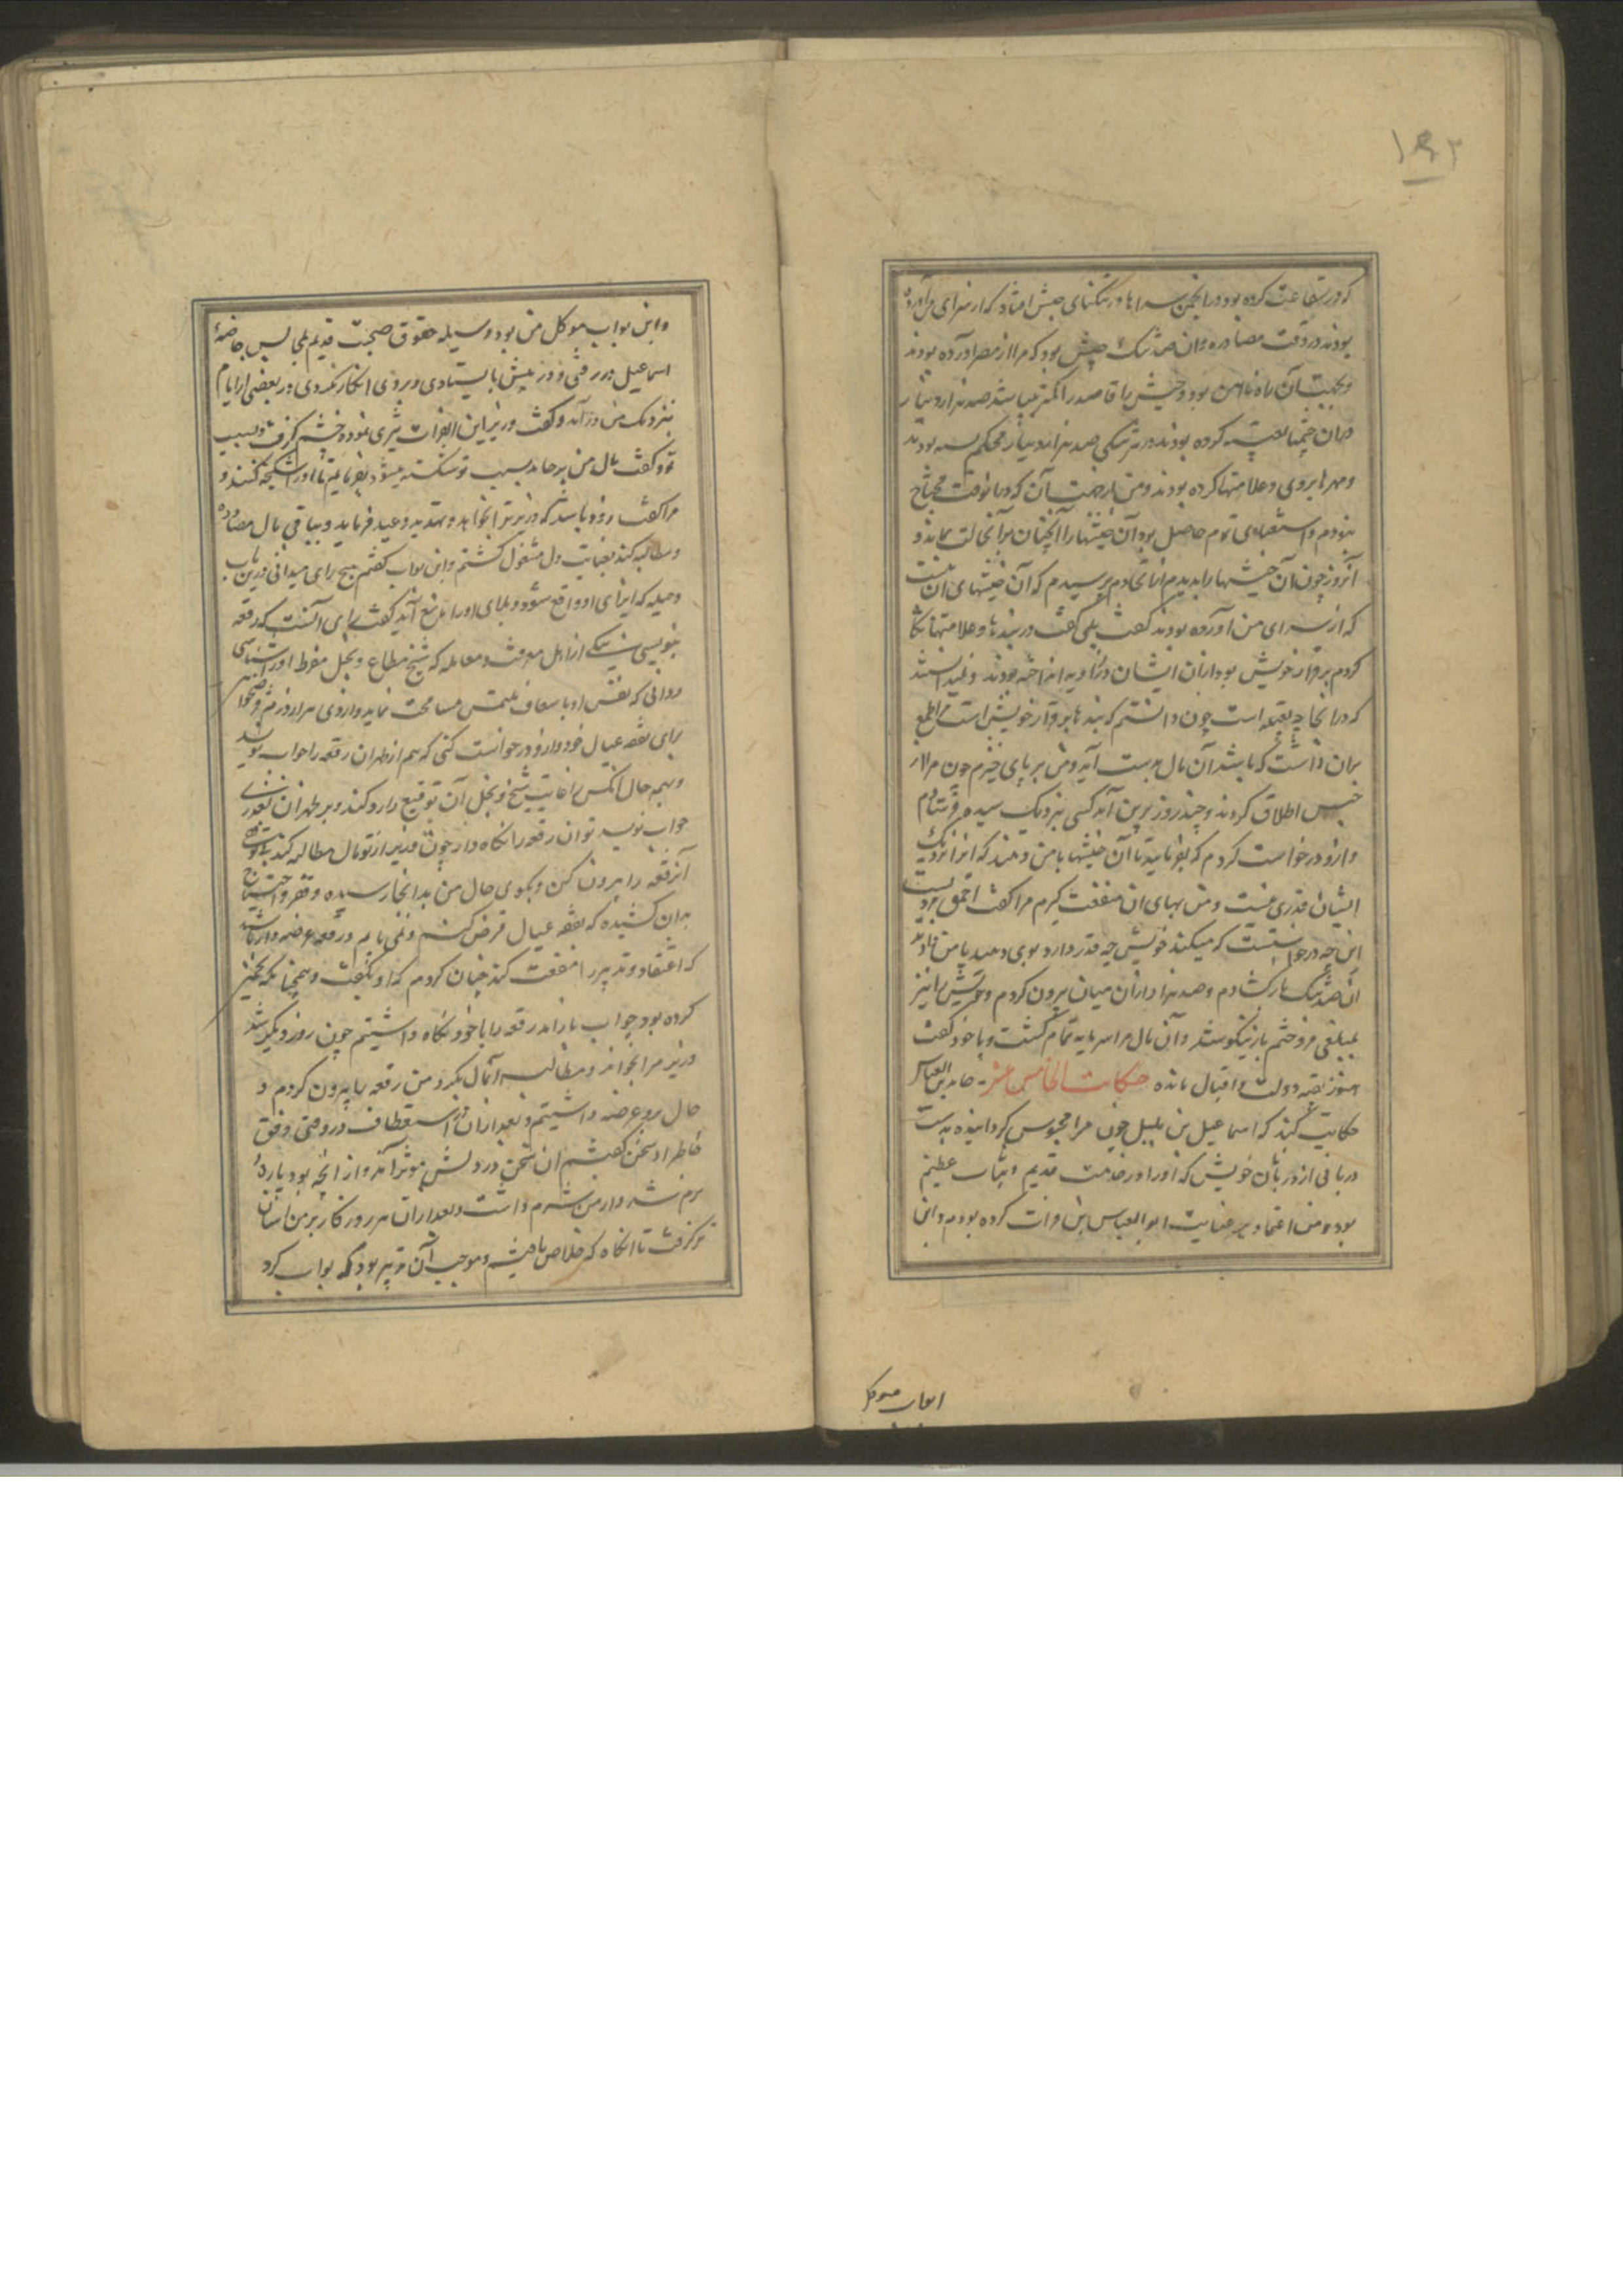 ۱۹۳
که در شفاعت کرده بود در انجمن سراها و در تنگهای خیش افتاد که از سرای من آورده
بودند در وقت مصادره و آن صد تنگ خیش بود که مرا از مصر آورده بودند
و بجهت آن راه ناامن بود و خیش را قاصد را کمتر میباشد صد هزار دینار
در میان خیشها تعبیه کرده بودند در هر تنگی هزار دینار محکم بسته بودند
و مهرها بروی و علامتها کرده بودند و من از جهت آن که در آنوقت محتاج
نبودم و استغنای تمام حاصل بود آن خیشها را آنچنان بر آن حالت بماند و
آنروز چون آن خیشها را بدیدم از آن خادم پرسیدم که آن خیشهای آن نیست
که از سرای من آورده بودند گفت بلی گفت در بندها و علامتها نگا
کردم برقرار خویش بود از آن ایشان در زاویه انداخته بودند و نمیدانستند
که در آنجا چه تعبیه است چون دانستم که بندها برقرار خویش است مرا طمع
بران داشت که باشد آن مال بدست آید و من بر پای خیزم چون مرا از
حبس اطلاق کردند و چند روز برین آمد کسی نزدیک سیده فرستادم
و ازو درخواست کردم که بفرماید تا آن خیشها با من دهند که آنرا نزدیک
ایشان قدری نیست و من ببهای آن منفعت گیرم مرا گفت احمق مردیست
این چه درخواستست که میکند خویش چه قدر دارد بوی دهید با من دادند
آن صد تنگ باز گشادم و صد هزار از آن میان بیرون کردم و خیش را نیز
بمبلغی فروختم باز نیکو شد و آن مال مرا سرمایه تمام گشت و با خود گفت
هنوز بقیه دولت و اقبال مانده حکایت الخامس عشر حامد بن العباس
حکایت کند که اسماعیل بن بلبل چون مرا محبوس گردانیده بدست
دربانی از دربانان خویش که او را در خدمت قدیم و بثبات عظیم
بود و من اعتماد بر عنایت ابو العباس بن فرات کرده بودم و این
بواب موکل
و این بواب موکل من بود وسیله حقوق صحبت قدیم بمجالس خاصه
اسماعیل در رفتی و در پیش بایستادی و بروی انکار نکردی و در بعضی ایام
نزدیک من در آمد و گفت وزیر این الفرات تیزی نمود و خشم گرفت و بسبب
تو و گفت مال من بر حامد بسبب تو شکسته میشود بفرمایم تا او را شکنجه کنند و
مرا گفت زود باشد که وزیر ترا بخواند و تهدید و وعید فرماید و بباقی مال مصادره
و مطالبه کند بغایت دل مشغول گشتم و این بواب گفتم هیچ رای میدانی درین باب
و حیله که ایذای او واقع شود و بلای او را مانع آید گفت رای آنست که رقعه
بنویسی بیکی از اهل معرفت و معامله که شیخ مطاع و بخل مفرط او شناسی
و دانی که نفس او باسعاف ملتمس مسامحت نماید و ازوی هزار درم قرض خوا
برای نفقه عیال خود و ازو درخواست کنی که هم از ظهر آن رقعه را جواب نویسد
و بهمه حال آنکس از غایت شح و بخل آن توقیع را رد کند و بر ظهر آن تعذری
جواب نویسد تو آن رقعه را نگاه دار چون وزیر از تو مال مطالبه کند بتو
آن رقعه را بیرون کن و بگوی حال من بدانجا رسیده و فقر و احتیاج
بدان کشیده که نفقه عیال قرض میکنم و نمی یابم و رقعه عرضه دار تا باشد
که اعتقاد و تدبیر را منفعت کند چنان کردم که او بگفت و همچنانکه تخمین
کرده بود جواب باز آمد رقعه را با خود نگاه داشتم چون روز دیگر شد
وزیر مرا بخواند و مطالبه آنمال بکرد و من رقعه را بیرون کردم و
حال برو عرضه داشتم و بعد از آن در استعطاف و در رقتی وفق
خاطر او سخن گفتم آن سخن در دلش موثر آمد و از آنچه بود پاره
نرم شد و از من شرم داشت و بعد از آن هر روز کار بر من آسان
تر گرفت تا آنگاه که خلاص یافتم و موجب آن تدبیر بود که بواب کرد